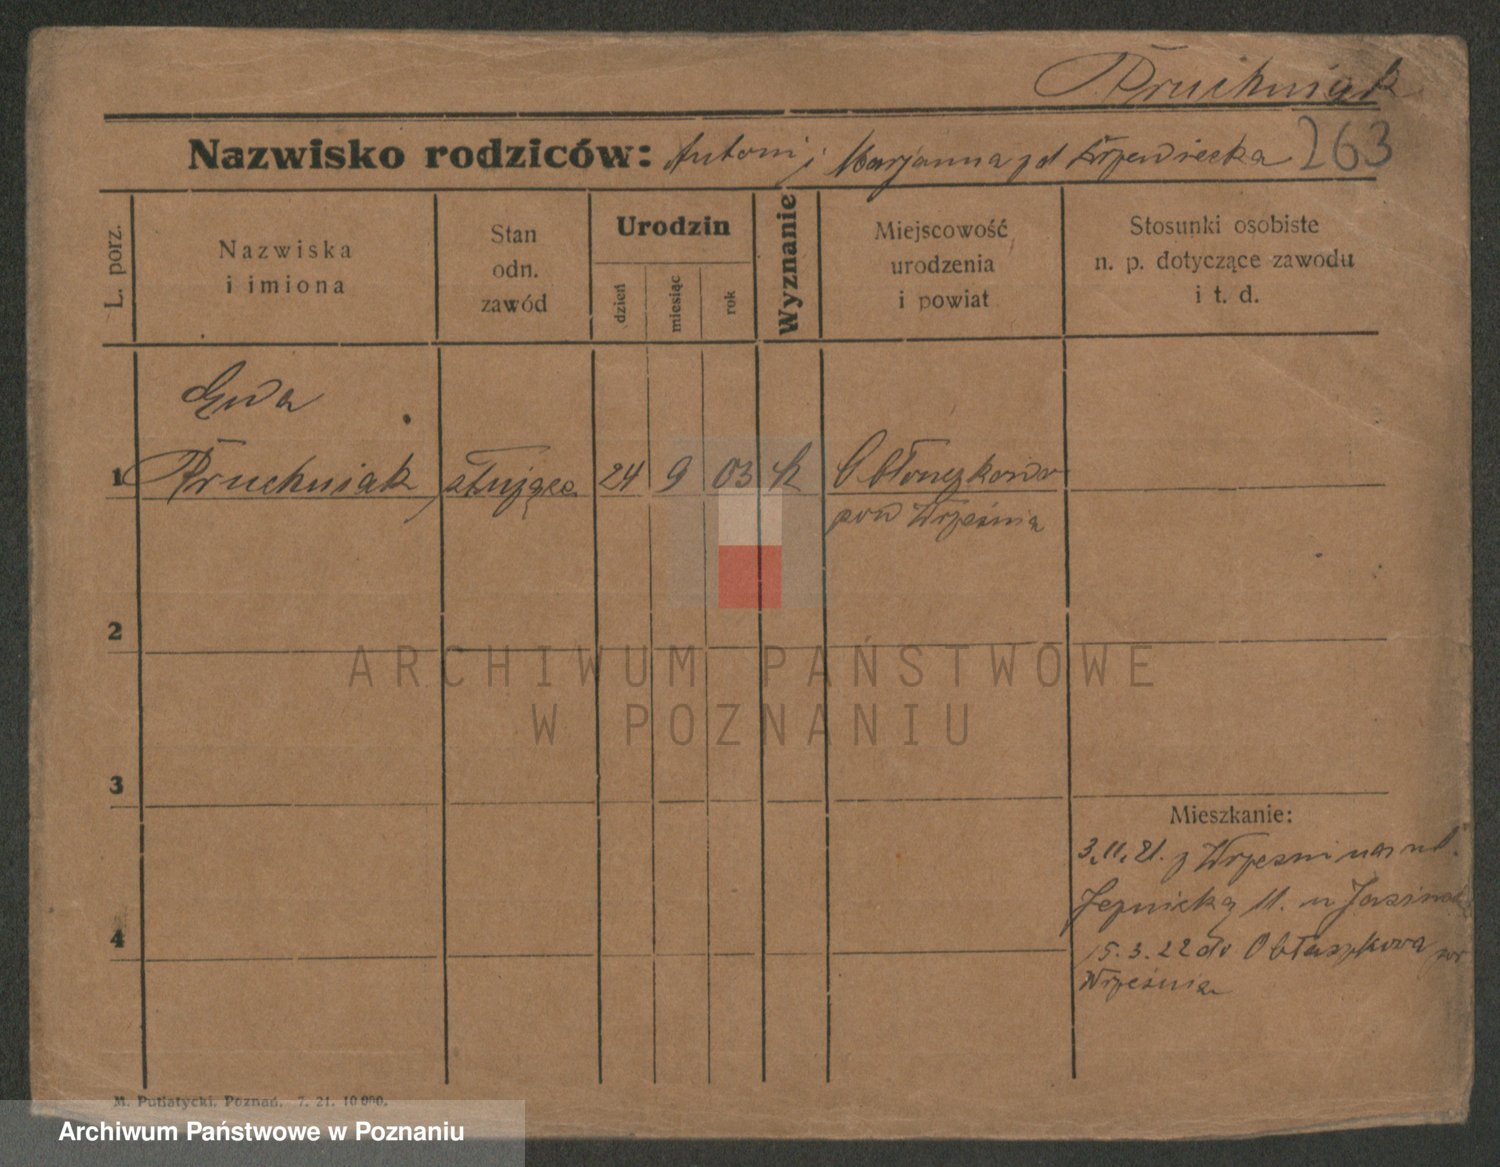 Pruchniak
Nazwisko rodziców: Antoni i Marjanna z d Krzewiecka 263
L. porz.
Nazwiska
i imiona
Stan
odn.
zawód
Urodzin
dzień
miesiąc
rok
Wyznanie
Miejscowość
urodzenia
i powiat
Stosunki osobiste
n. p. dotyczące zawodu
i t. d.
Ewa
1 Pruchniak służąca 24 9 03 k
pow Września
2
3
4
Mieszkanie:
3.11.21. z Wrześni na ul.
11. u
15.3.22 do Obłaszkowa pow
Września
M. Putiatycki, Poznań. 7. 21. 10 000.
ARCHIWUM PAŃSTWOWE
W POZNANIU
Archiwum Państwowe w Poznaniu